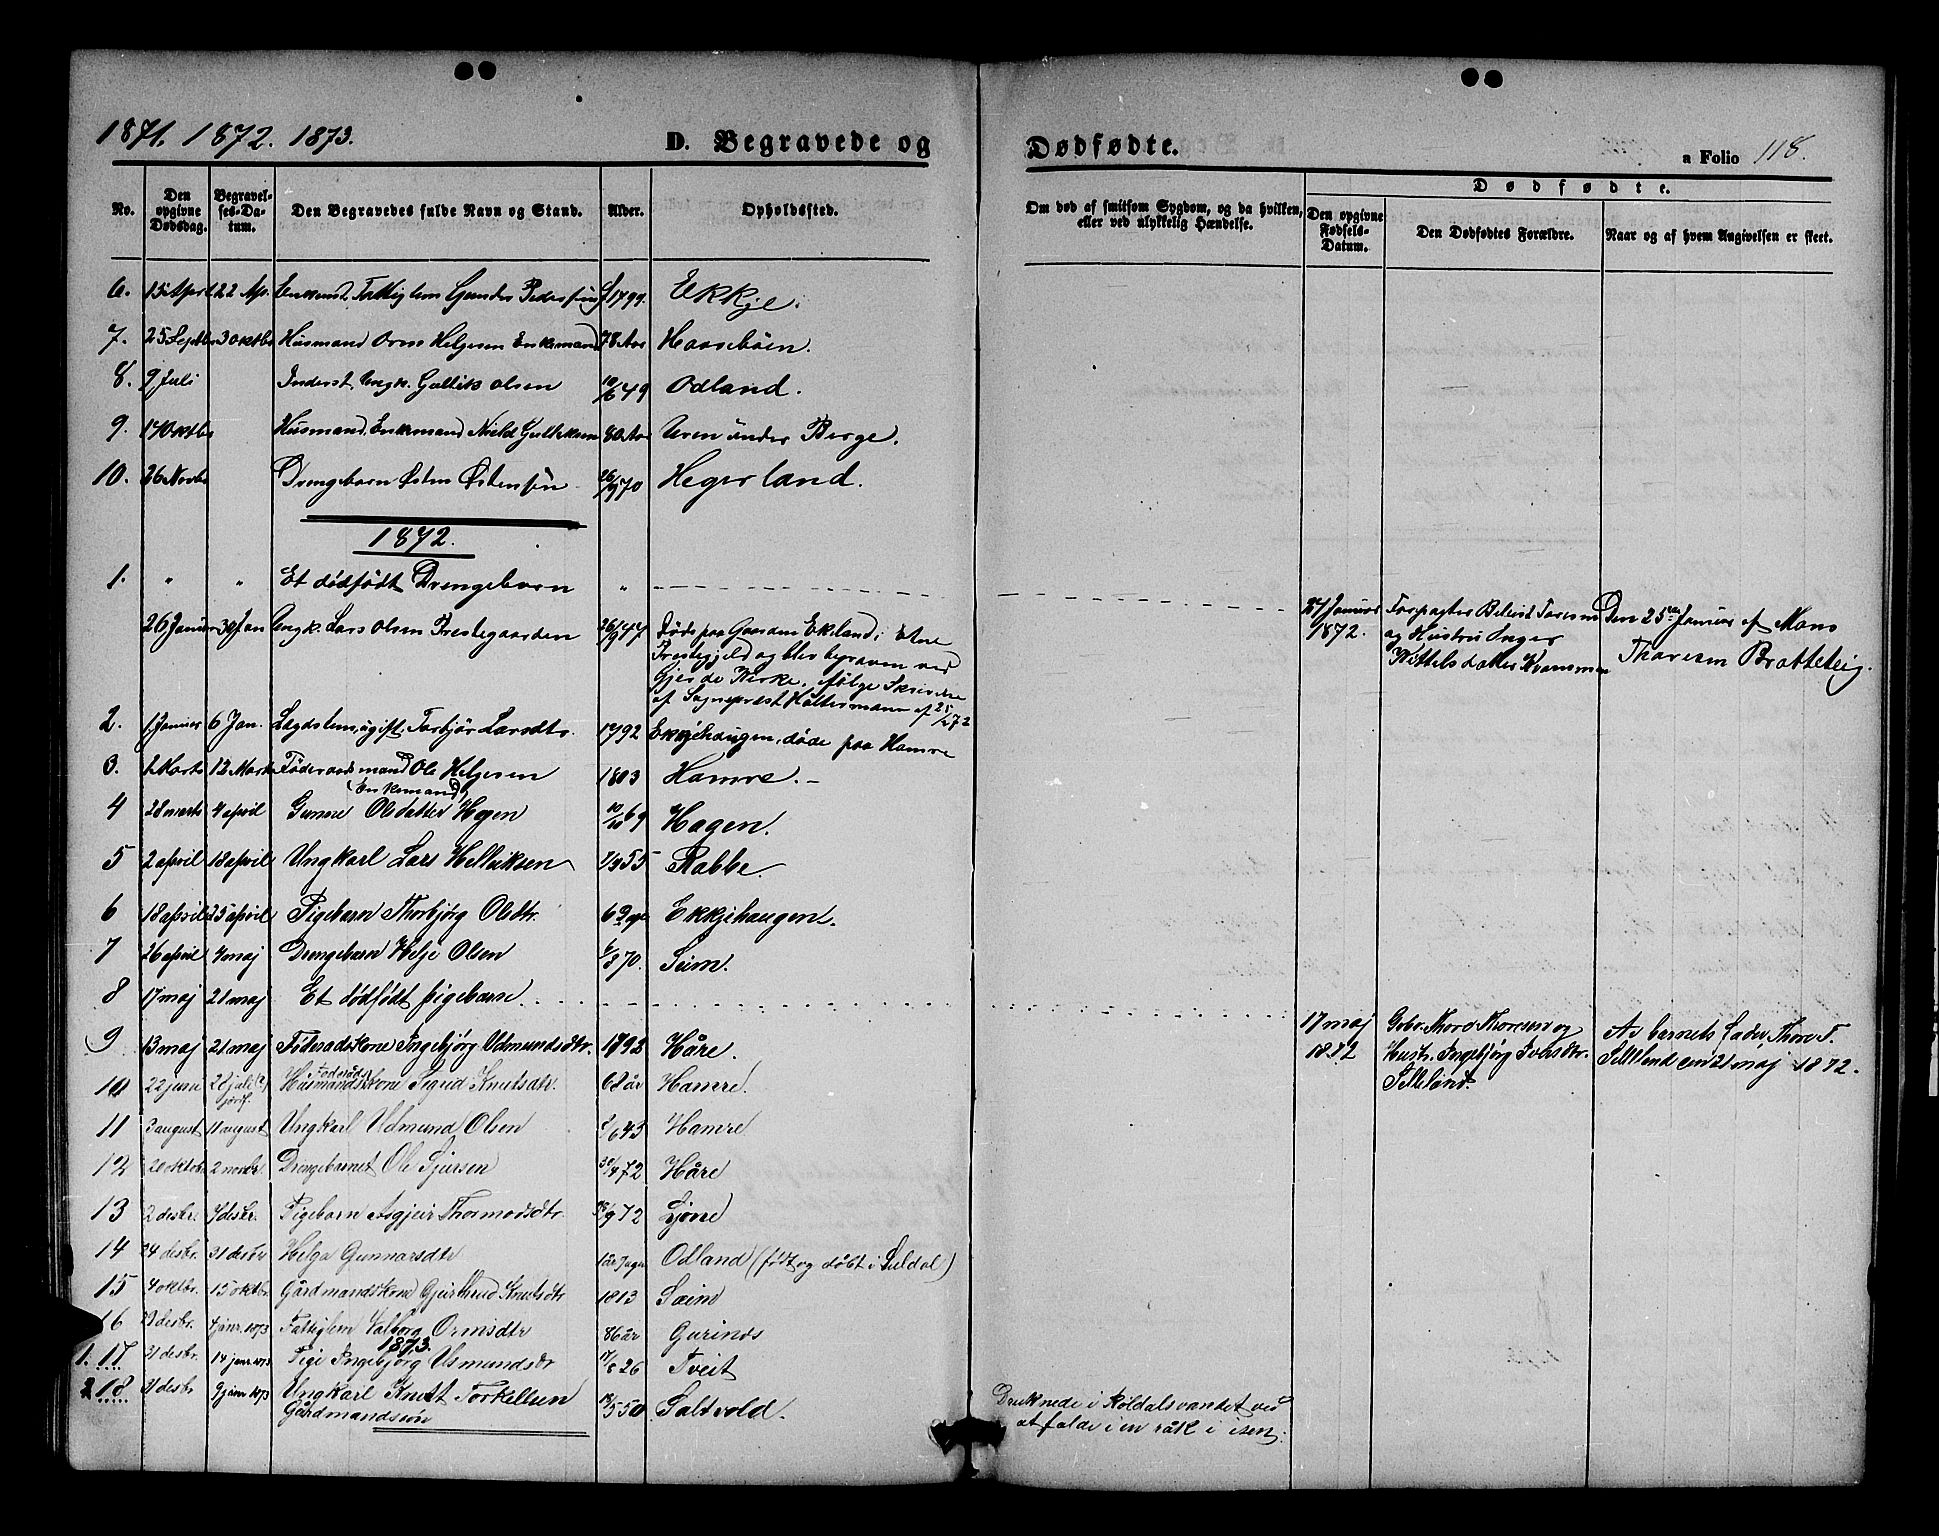 1871. 1872. 1873.
D. Begravede og
Dødfødte.
a Folio 118.
No.
Den opgivne Dødsdag.
Begravelses-Datum.
Den Begravedes fulde Navn og Stand.
Alder.
Opholdssted.
Om død af smitsom Sygdom, og da hvilken, eller ved ulykkelig Hændelse.
Dødfødte.
Den opgivne Fødsels-Datum.
Den Dødfødtes Forældre.
Naar og af hvem Angivelsen er skeet.
6. 15 April 22 Ap. Enkemd. Fattiglem 1799. Ekkje.
7. 25 Septbr 3 oktbr Husmand Orm Helgesen Enkemand 78 Aar Haaseböen.
8. 9 Juli Inderst Ungk. Gullik Olsen 10/6 49 Odland.
9. 17 Oktbr Husmand, Enkemand Gulleksen 80 Aar Uren under Berge.
10. 26 Novbr Drengebarn Østen Østensen 26/9 70 Hegerland.
1872.
1. " " Et dödfödt Drengebarn "
27 Januar 1872. Forpagter Thoresen og Hustru Inger Kittelsdatter Kvammen
Den 25de Januar af Mons Thoresen Bratteteig.
26 Januar 30 Jan Ungk. Lars Olsen Prestegaarden 26/9 47 Døde paa Gaarden Ekland i Etne
Prestegjeld og blev begraven ved
Gjerde Kirke, ifölge Skrivelse
af Sogneprest Haltermann af 25/2 72
2. 1 Januar 6 Jan. Lægdslem, ugift, Torbjör Larsdtr. 1792 Ekkjehaugen, döde paa Hamre
3. 1 Marts 12 Marts Föderaadsmand Ole Helgesen 1803 Hamre.
(Enkemand)
4 28 marts 4 april Gunne Olsdatter Hagen 10/10 69 Hagen.
5 2 april 13 april Ungkarl Lars Helliksen 55 Rabbe.
6 18 april 25 april Pigebarn Thorbjørg Olsdtr. 6 Dge Ekkjehaugen.
7 26 april 4 maj Drengebarn Helje Olsen 6/3 70. Seim.
8 17 maj 21 maj Et dödfödt pigebarn.
17 maj 1872 Gbr. Thord Thoresen og
Hustr. Ingebjörg Iversdtr.
Selleland.
Av barnets fader Thord T.
Selleland den 21 maj 1872.
9 13 maj 21 maj Föderadskone Ingebjørg Udmundsdtr. 1793 Håre.
10 22 juni 2 juli (?) Föderåds Husmandskone Sigrid Knutsdtr. 68 år Hamre.
11 3 august 11 august Ungkarl Udmund Olsen 43 Hamre
12 20 oktbr. 2 novbr. Drengebarnet Ole Sjursen 30/4 72 Håre
13 2 desbr. 7 desbr. Pigebarn Asgjeir Thormodsdtr. 72 Ljöne
14 24 desbr. 31 desbr Helga Gunnarsdtr Odland (född og döbt i Suldal)
15 4 oktbr. 15 oktbr. Gårdmandskone Gjertrud Knutsdtr 1813 Seim
16 23 desbr. 4 janr. 1873 Fattiglem Valborg Ormsdtr 86 år Gurinds
1873.
1. 17 31 desbr. 14 janr. 1873 Pige Ingebjørg Usmundsdr 17/8 26 Tveit
2 18 31 desbr. 9 janr 1873 Ungkarl Knut Torkellsen 19/5 50 Saltvold.
Gårdmandssön
Druknede i Röldalsvandet ved
at falde i en råk i isen.